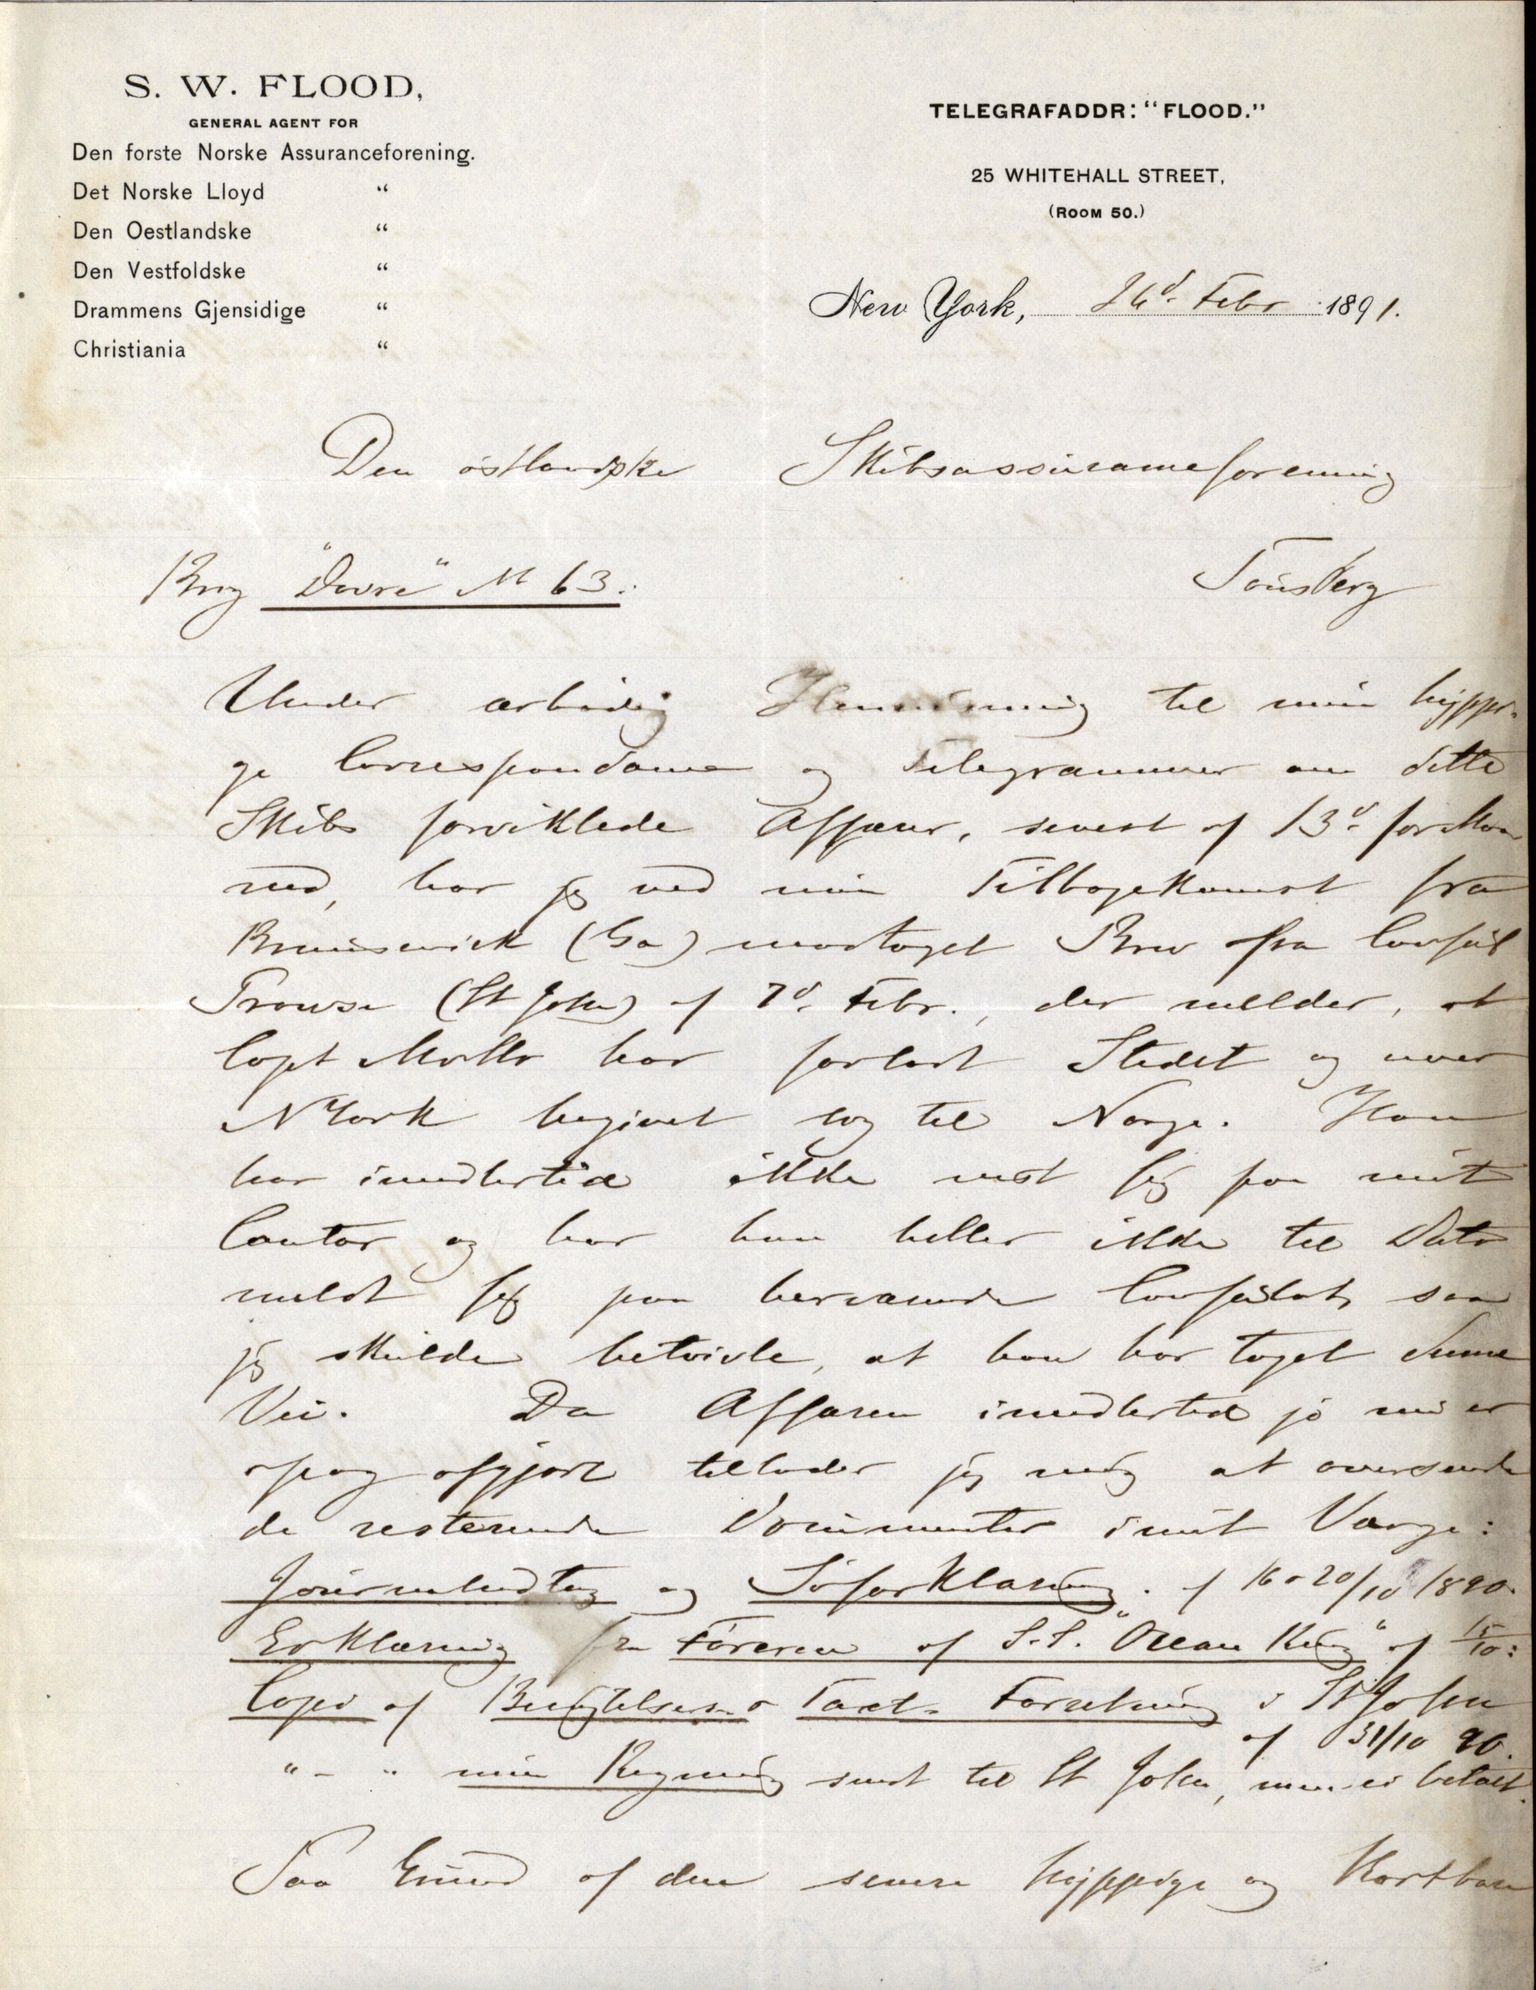 S. W. FLOOD,
GENERAL AGENT FOR
Den forste Norske Assuranceforening.
Det Norske Lloyd "
Den Oestlandske "
Den Vestfoldske "
Drammens Gjensidige "
Christiania "
TELEGRAFADDR: "FLOOD."
25 WHITEHALL STREET,
(ROOM 50.)
New York, 26d. Febr 1891.
Den østlandske Skibsassuranceforening
Tønsberg
Brig "Dovre" № 63.
Under ærbødig Henvisning til min hyppi-
ge Correspondance og Telegrammer om dette
Skibs forviklede Affære, senest af 13d. for Maa
ned, har jeg ved min Tilbagekomst fra
Brunswick (Ga) modtaget Brev fra Consul
Prowse (St John) af 7d. Febr., der melder, at
Capt Møller har forladt Stedet og over
N York begivet sig til Norge. Han
har imidlertid ikke meldt sig paa mit
Contor og har han heller ikke til Dato
meldt sig paa herværende Consulat, saa
jeg skulde betvivle, at han har taget denne
Vei. Da Affæren imidlertid jo nu er
opag afgjort tillader jeg mig at oversende
de resterende Documenter i mit Værge:
Journaludtog og Søforklaring. af 16 o 20/10 1890.
Erklæring fra Føreren af S.S. "Ocean King" af 15/10:
Copi af Besigtelses- o Taxt. Forretning i St John
af 31/10 90.
" - " min Regning sendt til St John, men ei betalt.
Paa Grund af den senere hyppige og kostbare